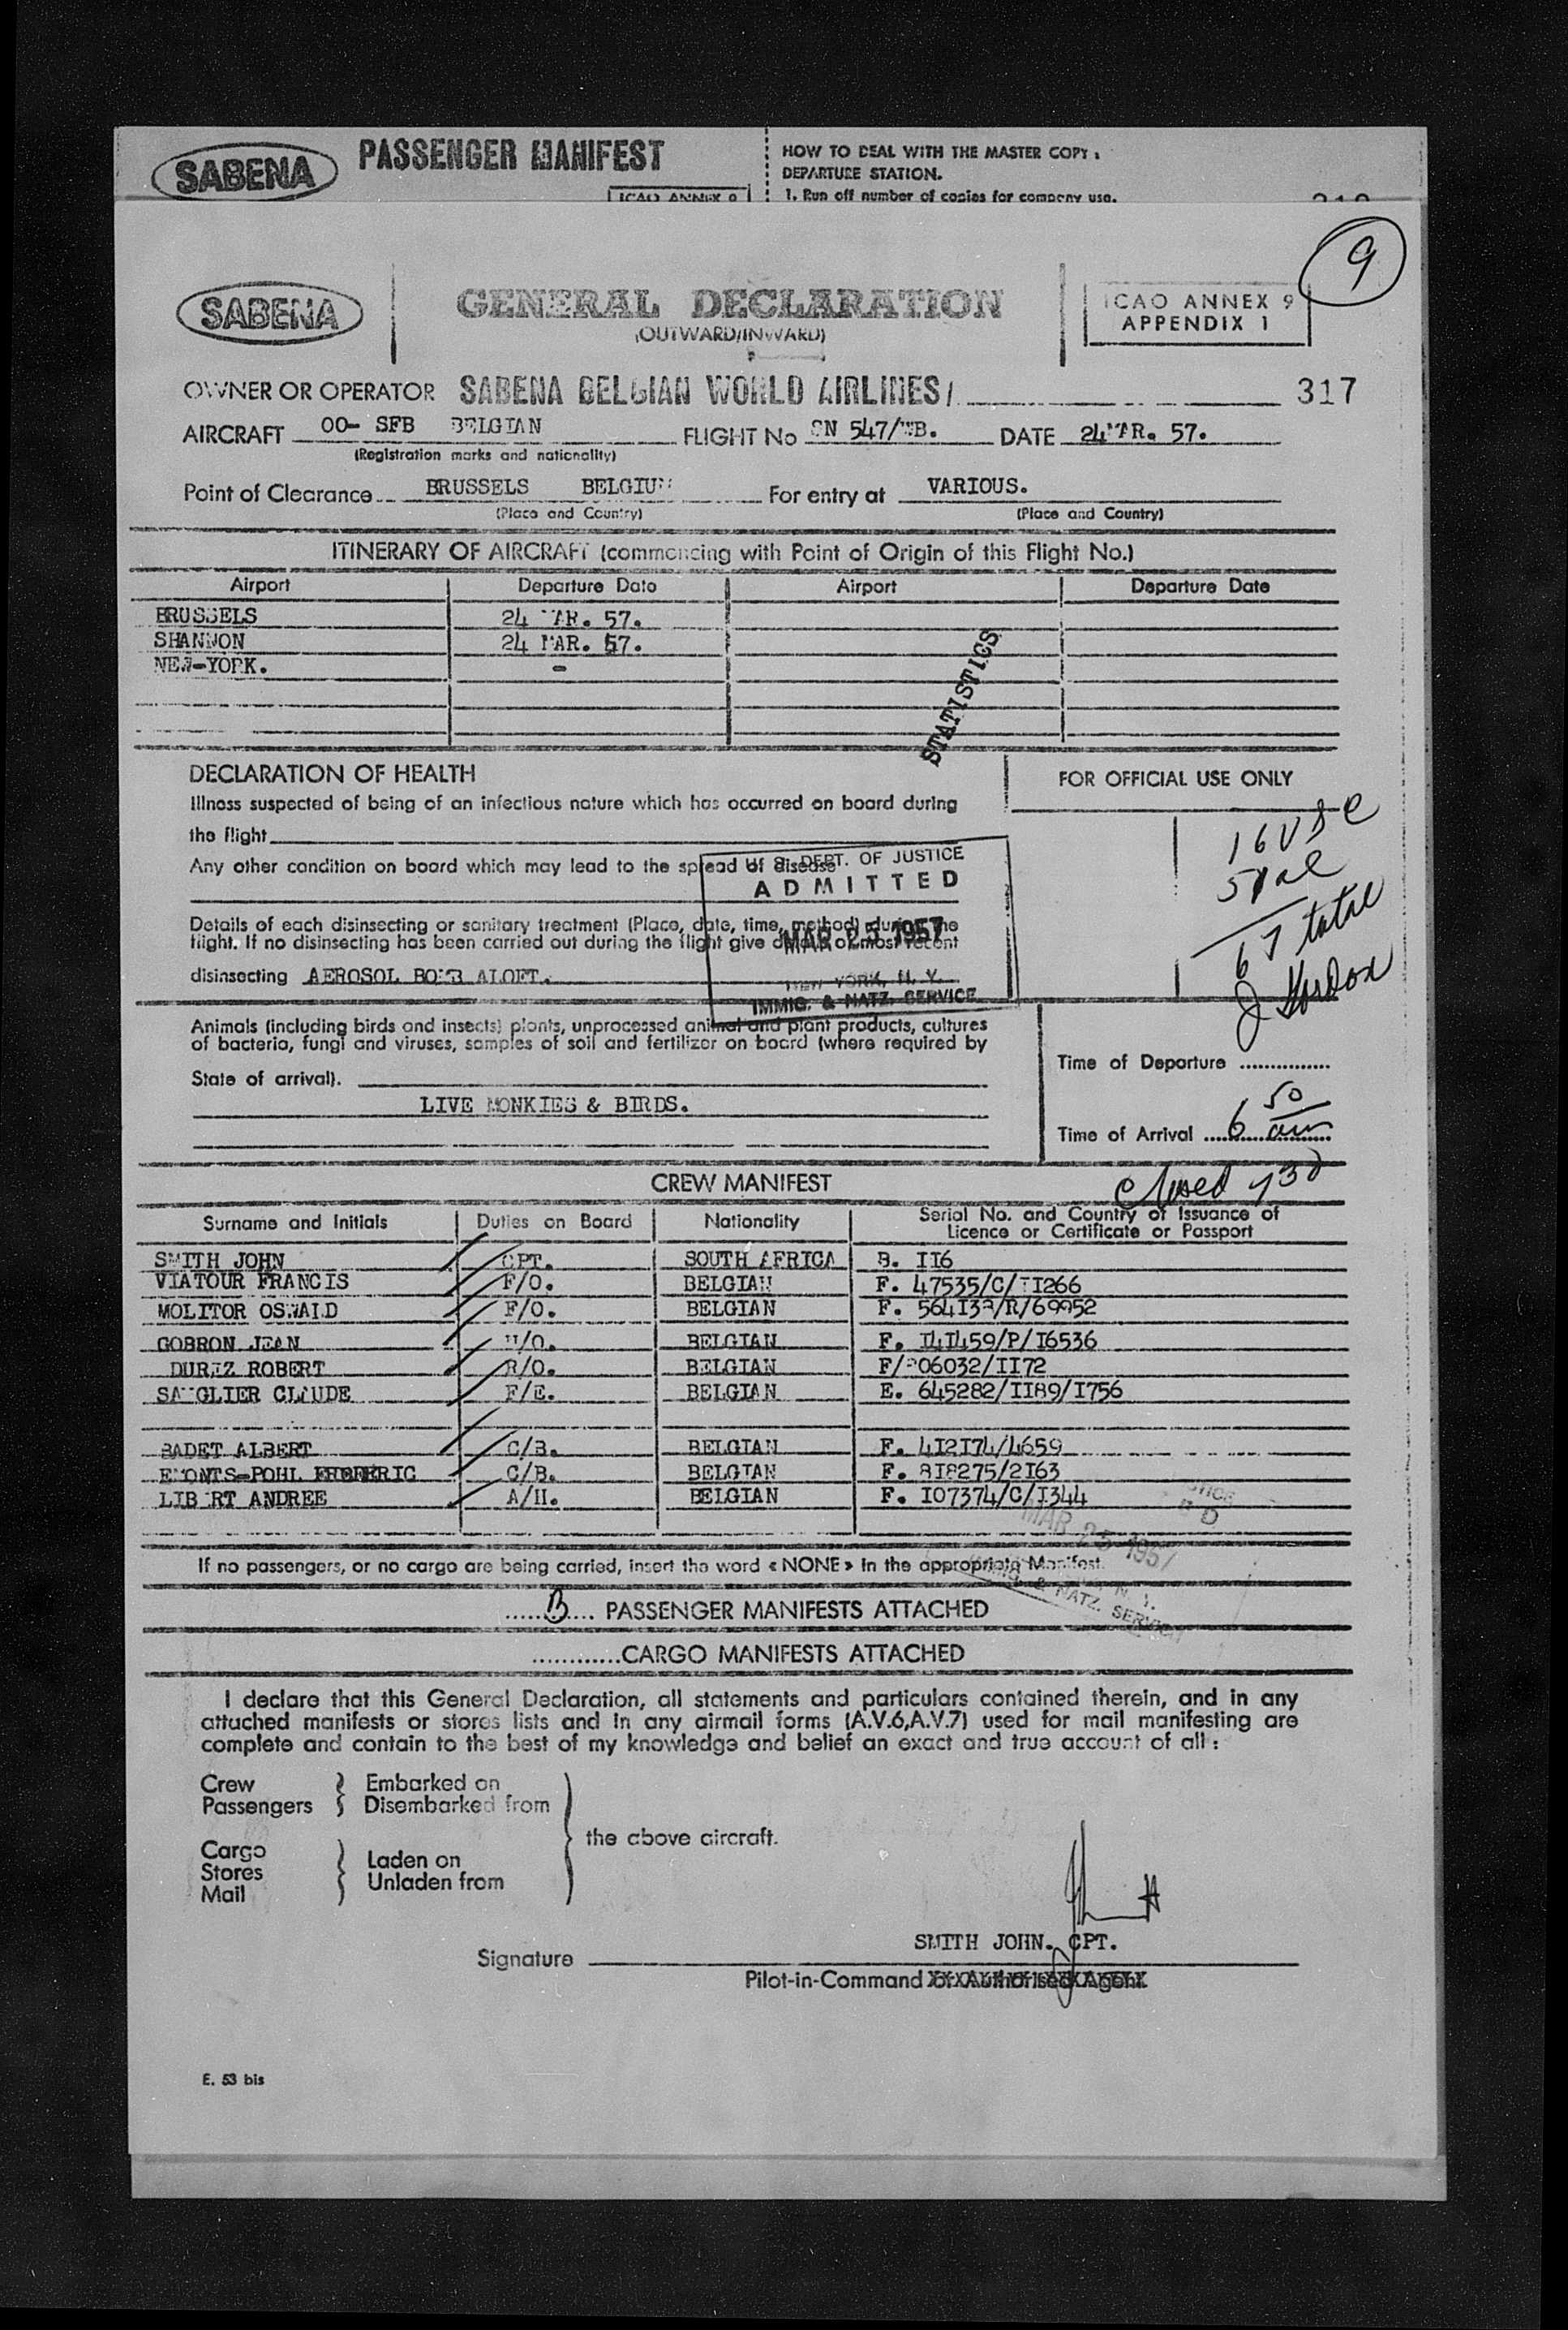 SABENA
PASSENGER MANIFEST
ICAO ANNEX 9
HOW TO DEAL WITH THE MASTER COPY :
DEPARTURE STATION.
1. Run off number of copies for company use.
9
SABENA
GENERAL DECLARATION
(OUTWARD/INWARD)
ICAO ANNEX 9
APPENDIX 1
OWNER OR OPERATOR SABENA BELGIAN WORLD AIRLINES/ 317
AIRCRAFT OO- SFB BELGIAN FLIGHT No SN 547/WB. DATE 24 MAR. 57.
(Registration marks and nationality)
Point of Clearance BRUSSELS BELGIUM For entry at VARIOUS.
(Place and Country) (Place and Country)
ITINERARY OF AIRCRAFT (commencing with Point of Origin of this Flight No.)
Airport Departure Date Airport Departure Date
BRUSSELS 24 MAR. 57.
SHANNON 24 MAR. 57.
NEW-YORK. -
STATISTICS
DECLARATION OF HEALTH
Illness suspected of being of an infectious nature which has occurred on board during
the flight
Any other condition on board which may lead to the spread of disease
Details of each disinsecting or sanitary treatment (Place, date, time, method) during the
flight. If no disinsecting has been carried out during the flight give details of most recent
disinsecting AEROSOL BOMB ALOFT.
U. S. DEPT. OF JUSTICE
ADMITTED
MAR 25 1957
NEW YORK, N. Y.
IMMIG. & NATZ. SERVICE
FOR OFFICIAL USE ONLY
16 USC
51 al
67 total
Animals (including birds and insects) plants, unprocessed animal and plant products, cultures
of bacteria, fungi and viruses, samples of soil and fertilizer on board (where required by
State of arrival).
LIVE MONKIES & BIRDS.
Time of Departure
Time of Arrival 6 50 am
Closed 730
CREW MANIFEST
Surname and Initials Duties on Board Nationality Serial No. and Country of Issuance of
Licence or Certificate or Passport
SMITH JOHN CPT. SOUTH AFRICA B. II6
VIATOUR FRANCIS F/O. BELGIAN F. 47535/C/II266
MOLITOR OSWALD F/O. BELGIAN F. /R/69952
GOBRON JEAN N/O. BELGIAN F. I4I459/P/I6536
ROBERT R/O. BELGIAN F/ 06032/II72
CLAUDE F/E. BELGIAN E. 645282/II89/I756
BADET ALBERT C/B. BELGIAN F. 4I2I74/4659
EMONTS-POHL FREDERIC C/B. BELGIAN F. 8I8275/2I63
LIBERT ANDREE A/H. BELGIAN F. I07374/C/I344
MAR 25 1957
N. Y.
& NATZ. SERVICE
If no passengers, or no cargo are being carried, insert the word « NONE » in the appropriate Manifest.
PASSENGER MANIFESTS ATTACHED
CARGO MANIFESTS ATTACHED
I declare that this General Declaration, all statements and particulars contained therein, and in any
attached manifests or stores lists and in any airmail forms (A.V.6,A.V.7) used for mail manifesting are
complete and contain to the best of my knowledge and belief an exact and true account of all :
Crew Embarked on
Passengers Disembarked from
the above aircraft.
Cargo
Stores Laden on
Mail Unladen from
SMITH JOHN. CPT.
Signature
Pilot-in-Command or Authorised Agent
E. 53 bis